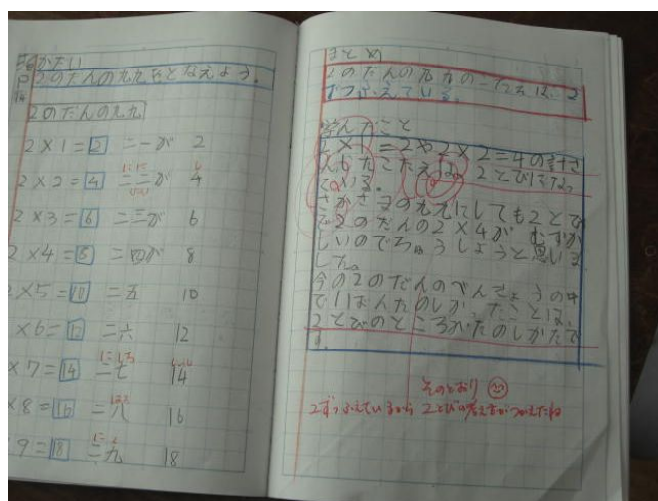 めあて
2のだんの九九をとなえよう。
2のだんの九九
2×1=2 二一が 2
2×2=4 二二が 4
2×3=6 二三が 6
2×4=8 二四が 8
2×5=10 二五 10
×6=12 二六 12
×7=14 二七 14
×8=16 二八 16
9=18 二九 18
まとめ
2のだんの九九のこたえは、2
ずつふえている。
学んだこと
2×1=2や2×2=4の計さ
んしたこたえは、2とびになっ
ている。
さかさまの九九にしても2とび
で2のだんの2×4が むずか
しいのでちゅうしようと思いま
した。
今の2のだんのべんきょうの中
でいばんたのしかったことは、
2とびのところがたのしかたで
す。
そのとおり
2ずつふえているから 2とびの考え方がつかえたね